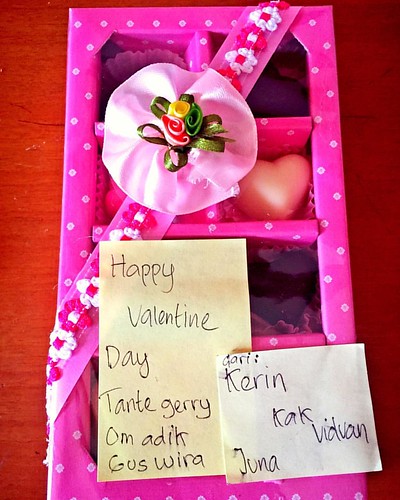 Happy
Valentine
Day
Tante gerry
Om adik
Gus wira
dari:
Kerin
Kak
Vidvan
Juna